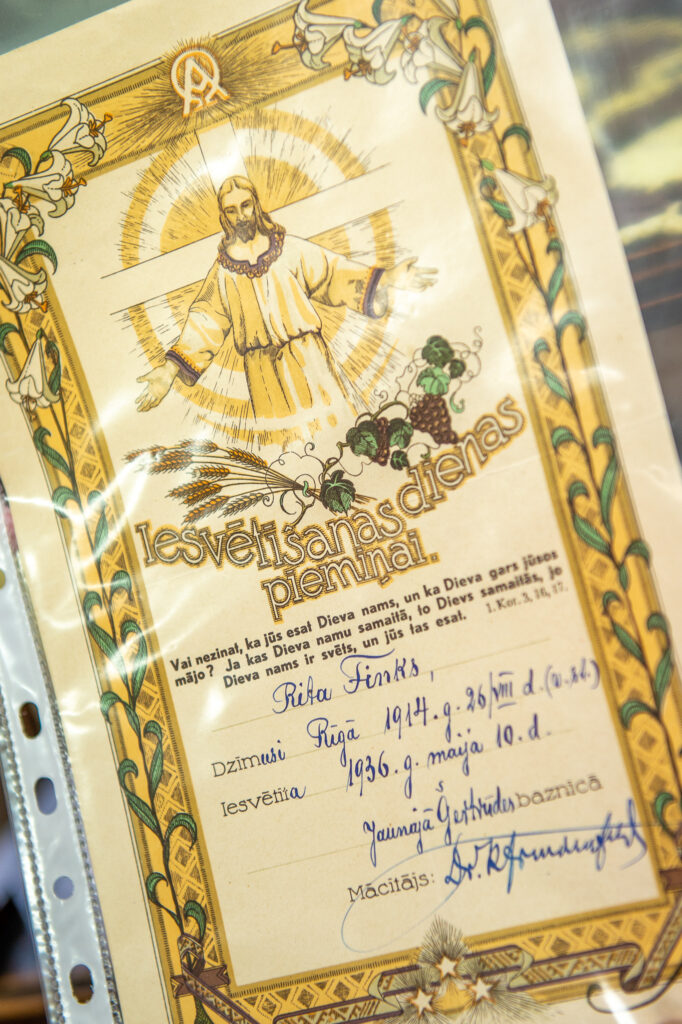 Iesvētīšanas dienas
piemiņai.
Vai nezinat, ka jūs esat Dieva nams, un ka Dieva gars jūsos
mājo? Ja kas Dieva namu samaitā, to Dievs samaitās, jo
Dieva nams ir svēts, un jūs tas esat. 1. Kor. 3, 16, 17.
Rita Finks,
Dzimusi Rīgā 1914. g. 26/VIII d. (v. st.)
Iesvētīta 1936. g. maijā 10. d.
Jaunajā Ģertrūdes baznīcā
Mācītājs: Dr. K.